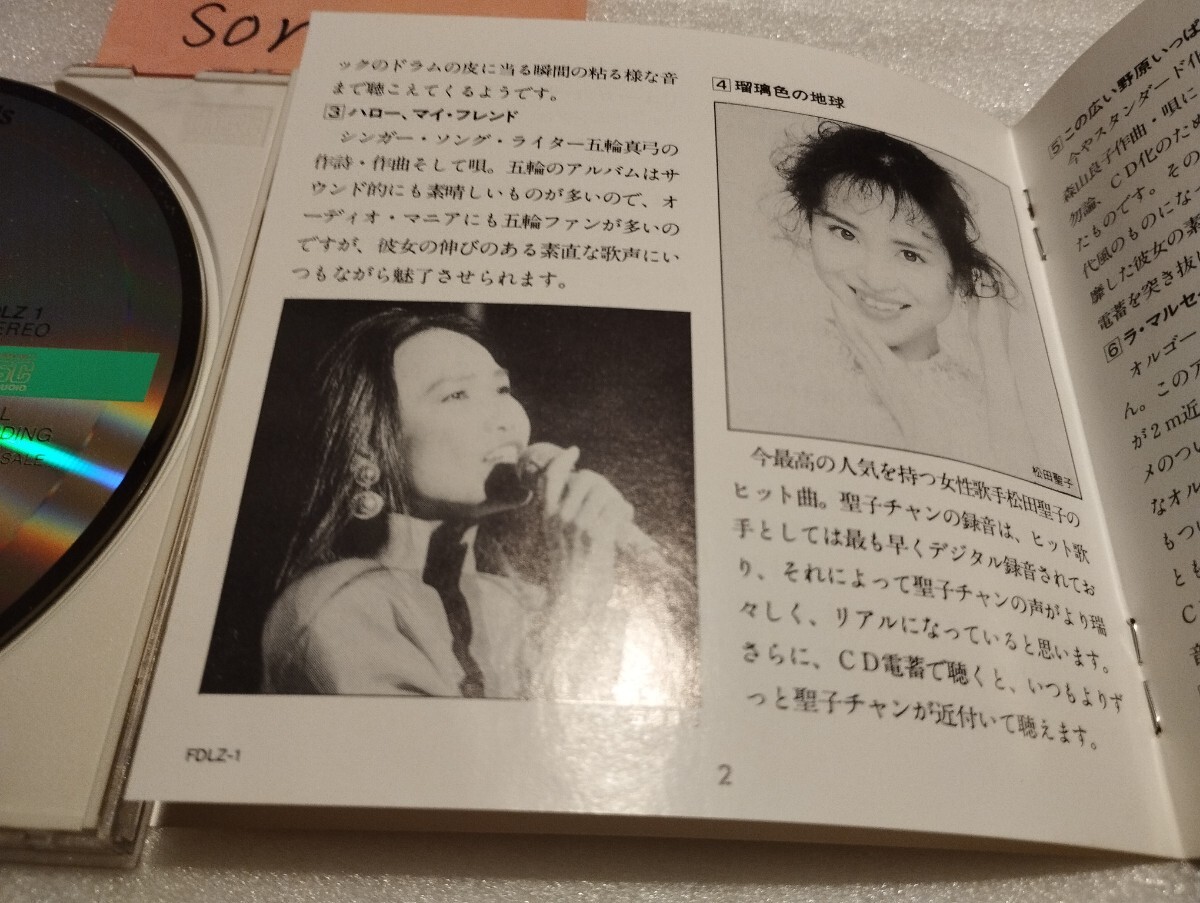 Sor
DLZ 1
EREO
DING
SALE
ックのドラムの皮に当る瞬間の粘る様な音
まで聴こえてくるようです。
3 ハロー、マイ・フレンド
シンガー・ソング・ライター五輪真弓の
作詩・作曲そして唄。五輪のアルバムはサ
ウンド的にも素晴しいものが多いので、オ
ーディオ・マニアにも五輪ファンが多いの
ですが、彼女の伸びのある素直な歌声にい
つもながら魅了させられます。
FDLZ-1
4 瑠璃色の地球
松田聖子
今最高の人気を持つ女性歌手松田聖子の
ヒット曲。聖子チャンの録音は、ヒット歌
手としては最も早くデジタル録音されてお
り、それによって聖子チャンの声がより瑞
々しく、リアルになっていると思います。
さらに、CD電蓄で聴くと、いつもよりず
っと聖子チャンが近付いて聴えます。
2
5 この広い野原いっぱ
今やスタンダード化
森山良子作曲・唄に
勿論、CD化のため
たものです。その
代風のものになっ
靡した彼女の素
電蓄を突き抜け
6 ラ・マルセ
オルゴー
ん。このア
が2m近
メのつい
なオル
もつい
とも
C
音